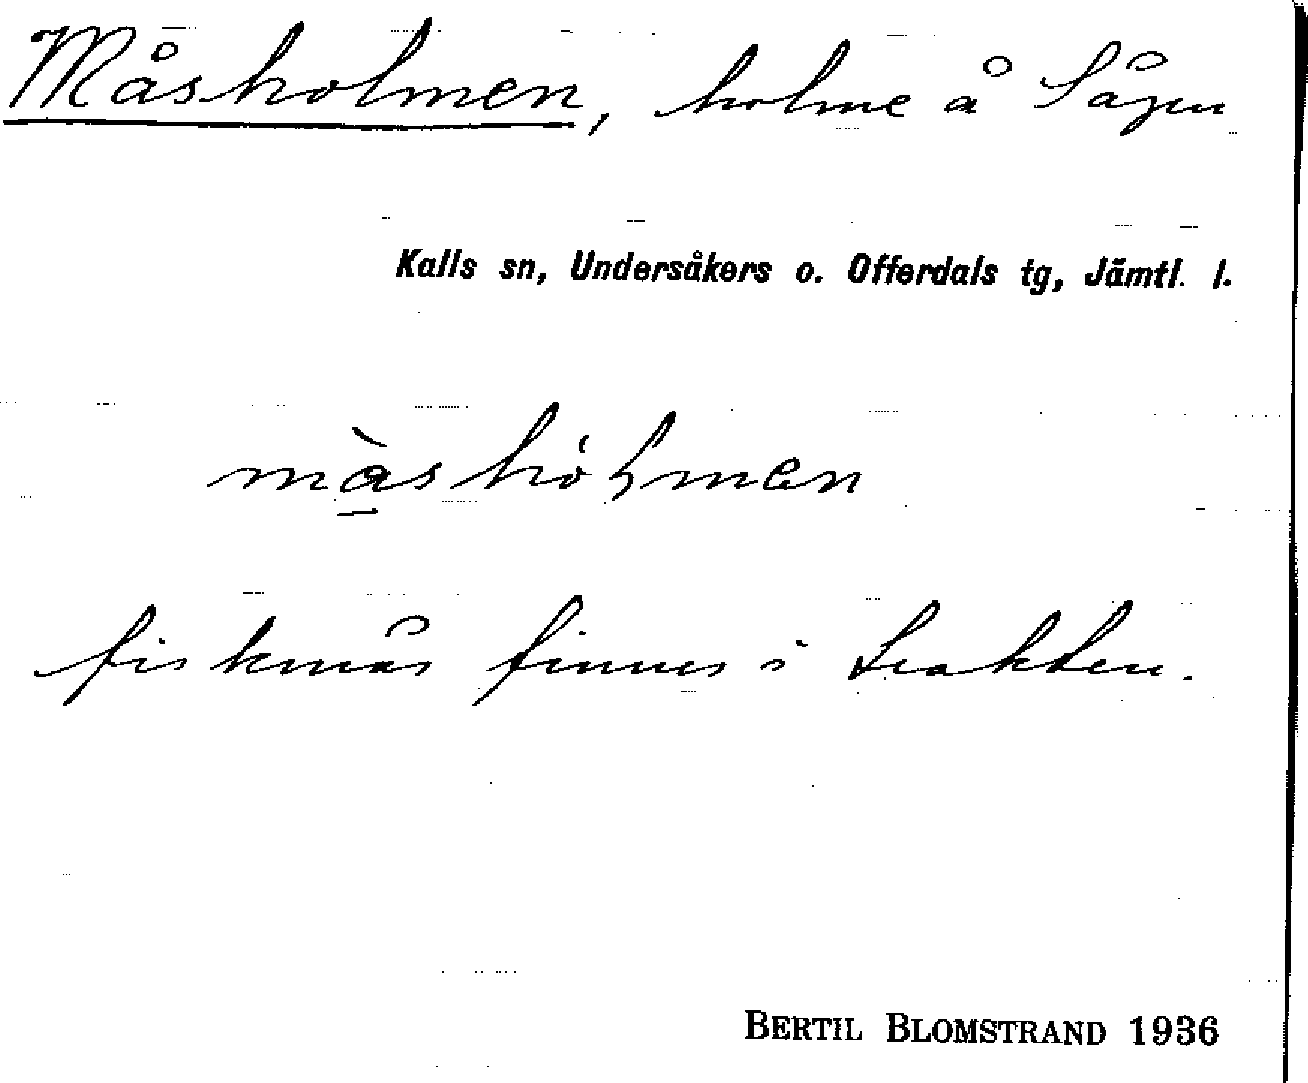 Måsholmen, holme å Sågen
Kalls sn, Undersåkers o. Offerdals tg, Jämtl. l.
mа̀shóɫmen
fiskmås finnes i trakten.
BERTIL BLOMSTRAND 1936